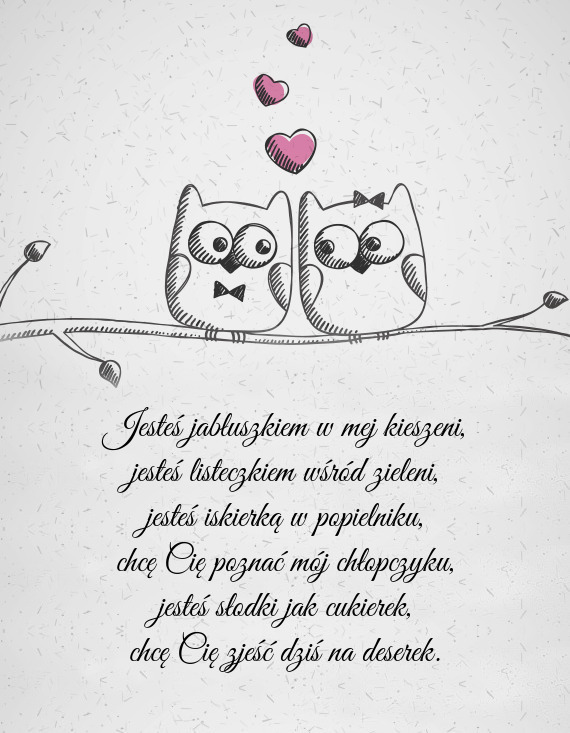 Jesteś jabłuszkiem w mej kieszeni,
jesteś listeczkiem wśród zieleni,
jesteś iskierką w popielniku,
chcę Cię poznać mój chłopczyku,
jesteś słodki jak cukierek,
chcę Cię zjeść dziś na deserek.